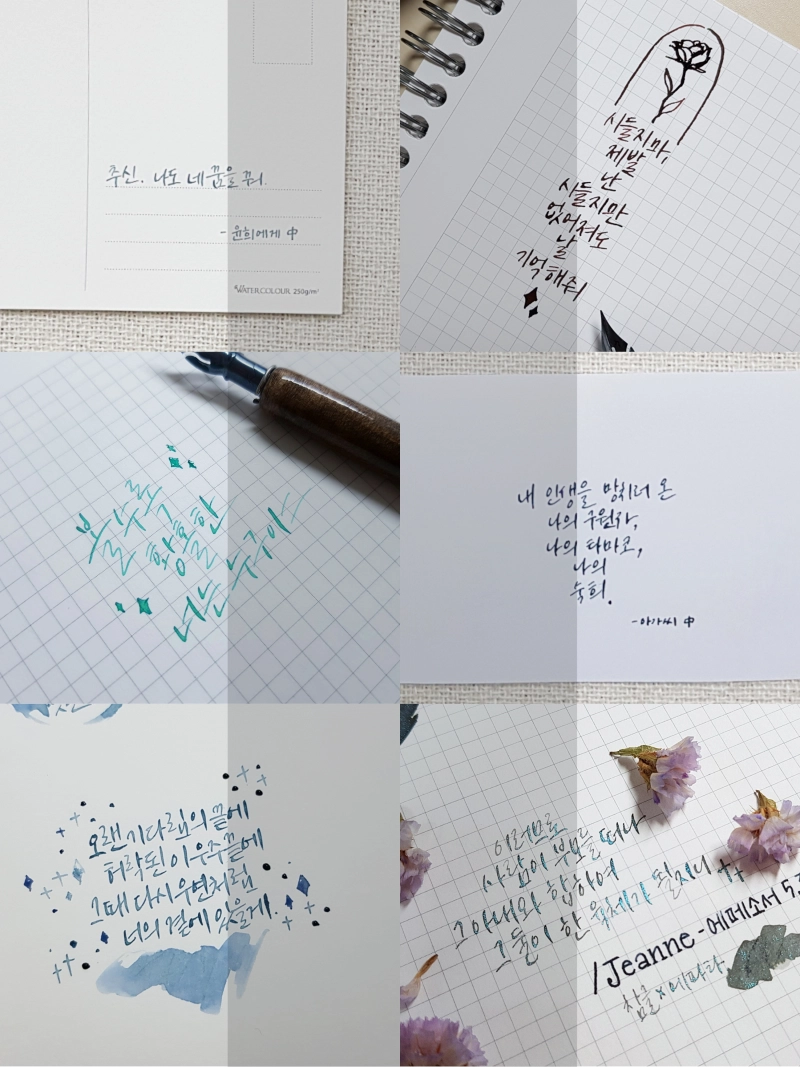 추신. 나도 네 꿈을 꿔.
- 윤희에게 中
WATERCOLOUR 250g/m²
시들지마,
제발
난
시들지만
없어져도
날
기억해줘
황홀한
너는 누구야
내 인생을 망치러 온
나의 구원자,
나의 타마코,
나의
숙희.
- 아가씨 中
오랜 기다림의 끝에
허락된 이 우주 끝에
그때 다시 우연처럼
너의 곁에 있을게.
이러므로
사람이 부모를 떠나
그 아내와 합하여
그 둘이 한 육체가 될지니
/Jeanne - 에페소서 5,3
참글x에파타